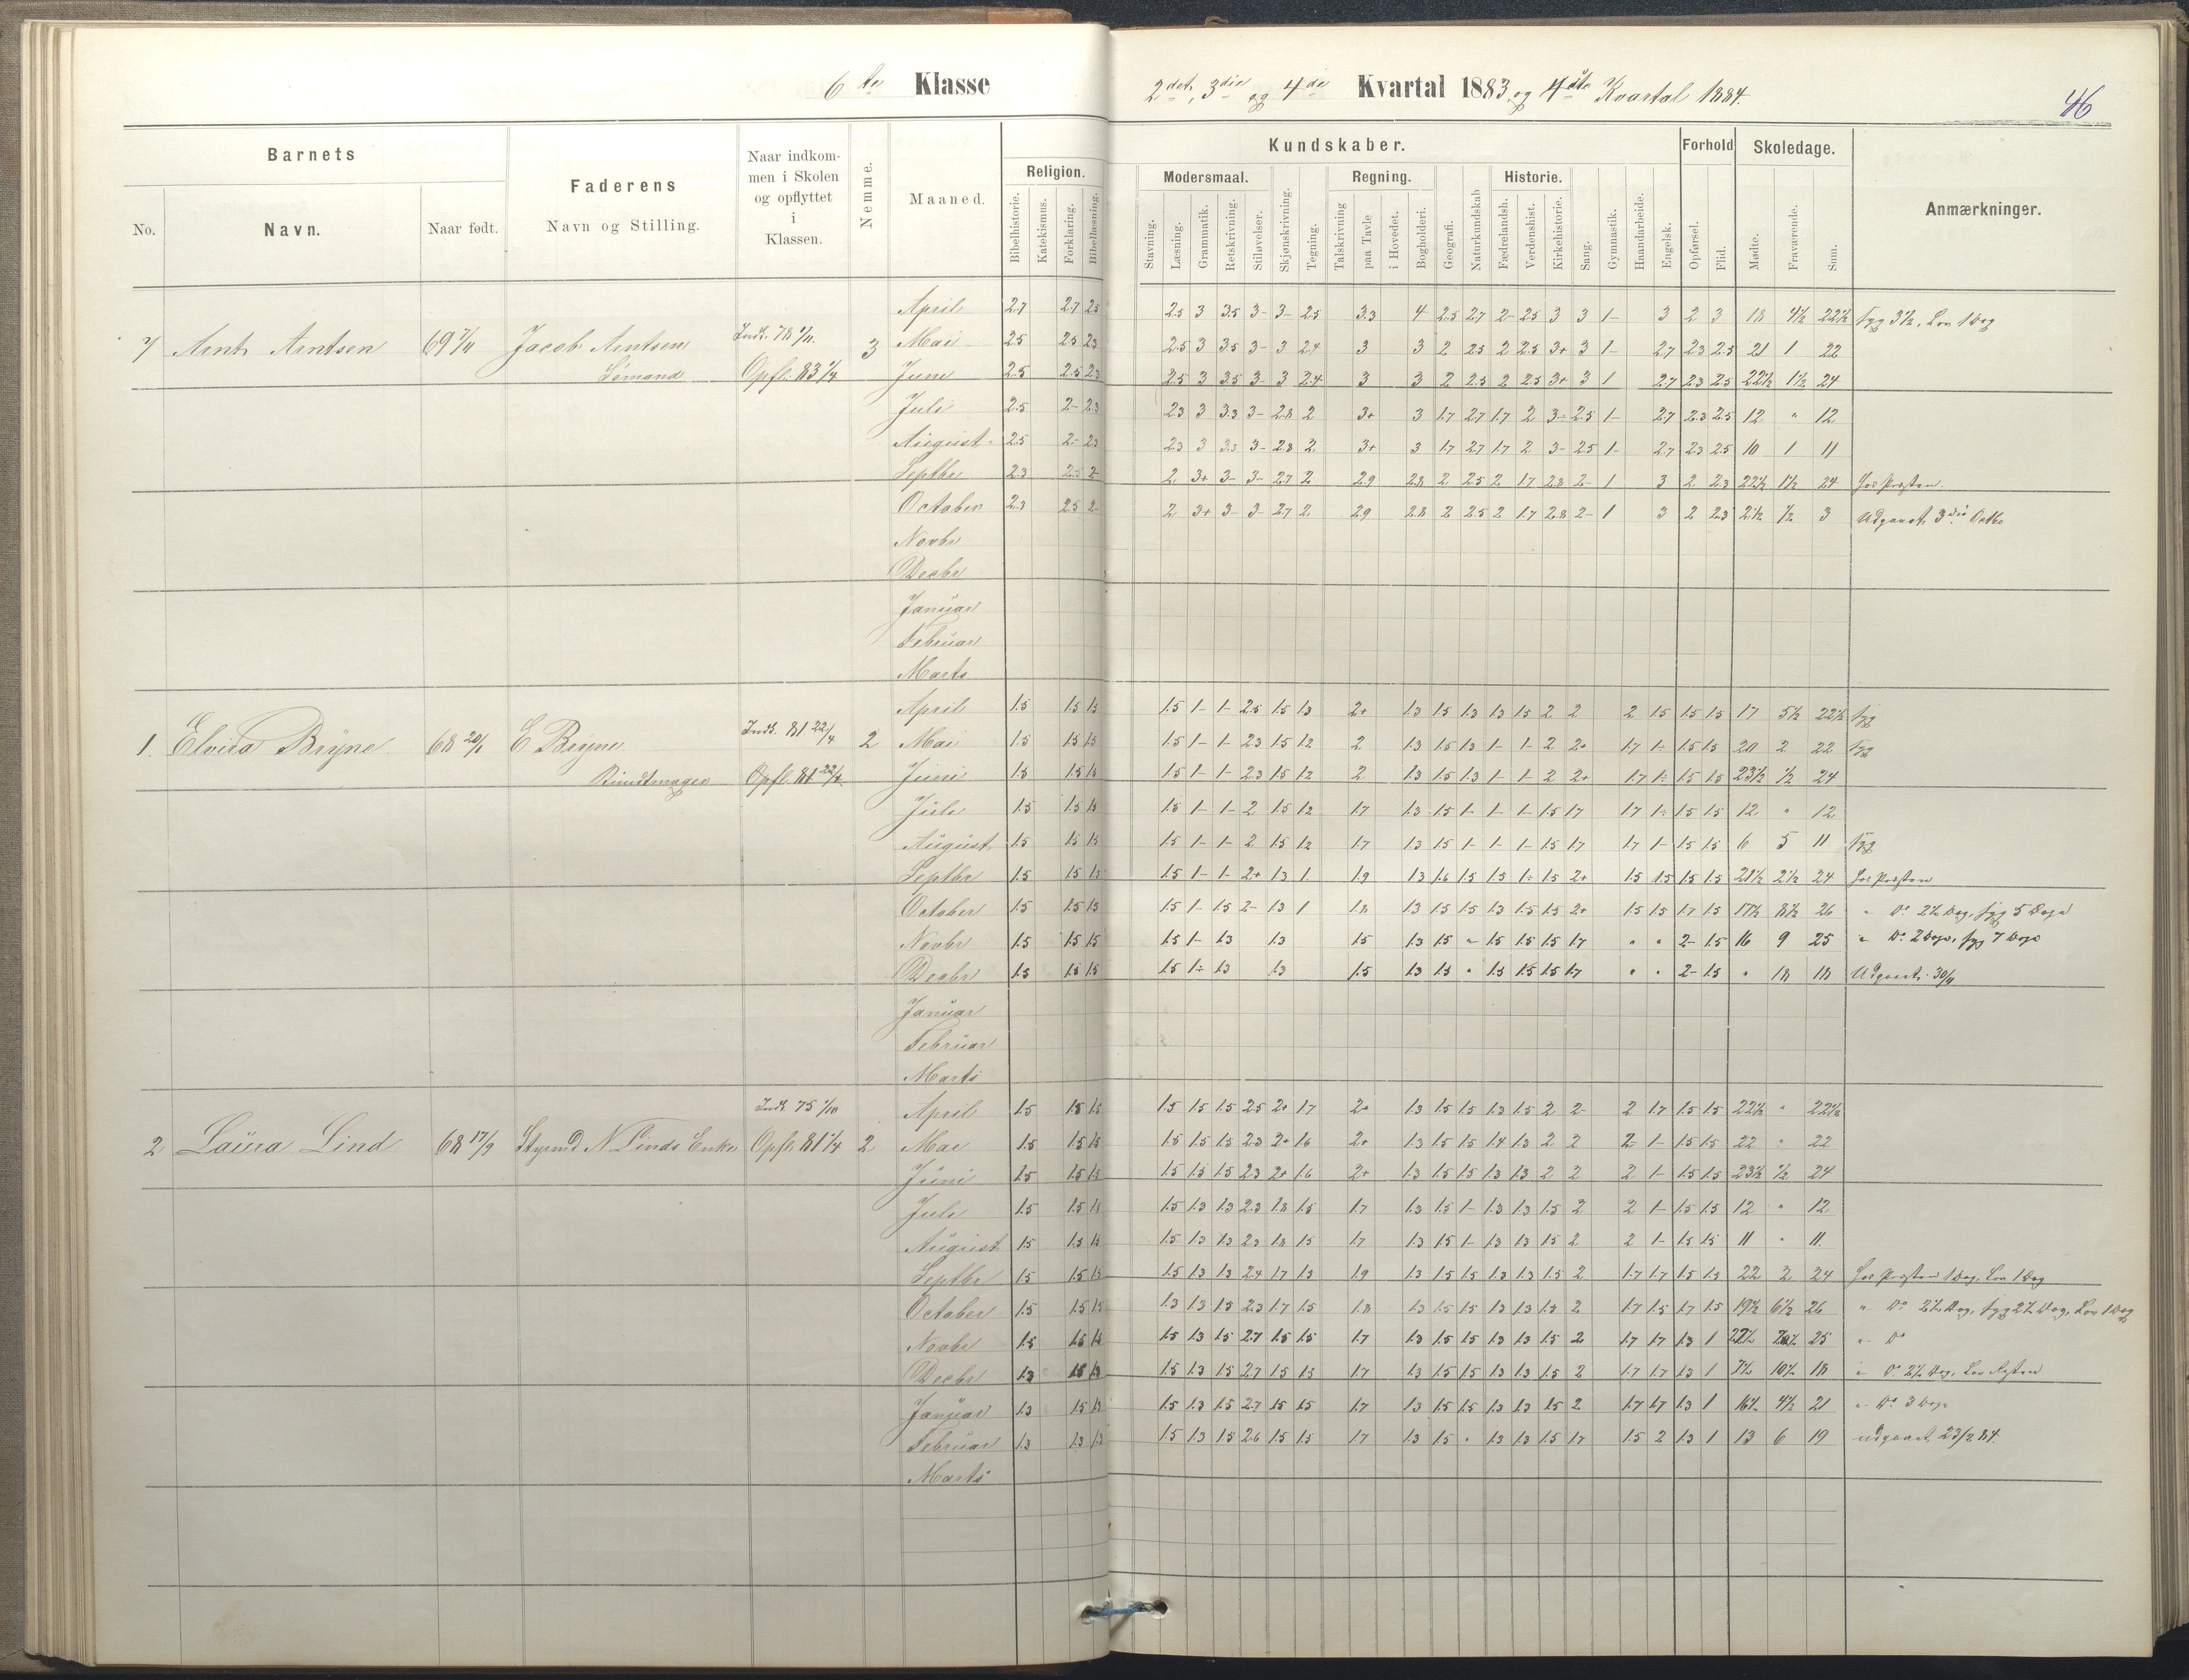 6te Klasse
2det, 3die og 4de Kvartal 1883 og 1ste Kvartal 1884.
46
Barnets
Faderens
Naar indkommen i Skolen og opflyttet i Klassen.
Nemme.
Maaned.
Religion.
Kundskaber.
Forhold
Skoledage.
Anmærkninger.
Modersmaal.
Regning.
Historie.
No.
Navn.
Naar født.
Navn og Stilling.
Bibelhistorie.
Katekismus.
Forklaring.
Bibellæsning.
Stavning.
Læsning.
Grammatik.
Retskrivning.
Stiløvelser.
Skjønskrivning.
Tegning.
Talskrivning
paa Tavle
i Hovedet.
Bogholderi.
Geografi.
Naturkundskab
Fædrelandsh.
Verdenshist.
Kirkehistorie.
Sang.
Gymnastik.
Haandarbeide.
Engelsk.
Opførsel.
Flid.
Mødte.
Fraværende.
Sum.
April 2.7 2.7 2.5 2.5 3 3.5 3- 3- 2.5 3.3 4 2.5 2.7 2- 2.5 3 3 1- 3 2 3 18 4½ 22½ syg 3½, Lov 1 Dag
7 Arnt Arntsen 69 7/11 Jacob Arntsen Indk. 78 1/11 3 Mai 2.5 2.5 2.3 2.5 3 3.5 3- 3 2.4 3 3 2 2.5 2 2.5 3+ 3 1- 2.7 2.3 2.5 21 1 22
Sømand Opfl. 83 1/4 Juni 2.5 2.5 2.3 2.5 3 3.5 3- 3 2.4 3 3 2 2.5 2 2.5 3+ 3 1 2.7 2.3 2.5 22½ 1½ 24
Juli 2.5 2- 2.3 2.3 3 3.3 3- 2.8 2 3+ 3 1.7 2.7 1.7 2 3- 2.5 1- 2.7 2.3 2.5 12 " 12
August 2.5 2- 2.3 2.3 3 3.3 3- 2.8 2 3+ 3 1.7 2.7 1.7 2 3- 2.5 1- 2.7 2.3 2.5 10 1 11
Septbr 2.3 2.5 2- 2 3+ 3- 3- 2.7 2 2.9 2.8 2 2.5 2 1.7 2.8 2- 1 3 2 2.3 22½ 1½ 24 hos Præsten.
October 2.3 2.5 2- 2 3+ 3- 3- 2.7 2 2.9 2.8 2 2.5 2 1.7 2.8 2- 1 3 2 2.3 2½ ½ 3 Udgaaet 3die Octbr
Novbr
Decbr
Januar
Februar
Marts
April 1.5 1.5 1.5 1.5 1- 1- 2.5 1.5 1.3 2+ 1.3 1.5 1.3 1.3 1.5 2 2 2 1.5 1.5 1.5 17 5½ 22½ syg
1. Elvira Bryne 68 20/1 E Bryne Indk. 81 22/4 2 Mai 1.5 1.5 1.5 1.5 1- 1- 2.3 1.5 1.2 2 1.3 1.5 1.3 1- 1- 2 2+ 1.7 1- 1.5 1.5 20 2 22 syg
Bundtmager Opfl. 81 22/4 Juni 1.5 1.5 1.5 1.5 1- 1- 2.3 1.5 1.2 2 1.3 1.5 1.3 1- 1- 2 2+ 1.7 1- 1.5 1.5 23½ ½ 24
Juli 1.5 1.5 1.5 1.5 1- 1- 2 1.5 1.2 1.7 1.3 1.5 1- 1- 1- 1.5 1.7 1.7 1- 1.5 1.5 12 " 12
August 1.5 1.5 1.5 1.5 1- 1- 2 1.5 1.2 1.7 1.3 1.5 1- 1- 1- 1.5 1.7 1.7 1- 1.5 1.5 6 5 11 syg
Septbr 1.5 1.5 1.5 1.5 1- 1- 2+ 1.3 1 1.9 1.3 1.6 1.5 1.5 1- 1.5 2+ 1.5 1.5 1.5 1.5 21½ 2½ 24 hos Præsten
October 1.5 1.5 1.5 1.5 1- 1.5 2- 1.3 1 1.8 1.3 1.5 1.5 1.3 1.5 1.5 2+ 1.5 1.5 1.7 1.5 17½ 8½ 26 " Do 2½ Dag, syg 5 Dage
Novbr 1.5 1.5 1.5 1.5 1- 1.3 1.3 1.5 1.3 1.5 " 1.5 1.5 1.5 1.7 " " 2- 1.5 16 9 25 " Do 2 Dage, syg 7 Dage
Decbr 1.5 1.5 1.5 1.5 1- 1.3 1.3 1.5 1.3 1.5 " 1.5 1.5 1.5 1.7 " " 2- 1.5 " 18 18 Udgaaet 30/11
Januar
Februar
Marts
Indk. 75 1/10 April 1.5 1.5 1.5 1.5 1.5 1.5 2.5 2+ 1.7 2+ 1.3 1.5 1.5 1.3 1.5 2 2- 2 1.7 1.5 1.5 22½ " 22½
2 Laura Lind 68 17/9 Styrmd N Linds Enke Opfl. 81 1/4 2 Mai 1.5 1.5 1.5 1.5 1.5 1.5 2.3 2+ 1.6 2+ 1.3 1.5 1.5 1.4 1.3 2 2 2 1- 1.5 1.5 22 " 22
Juni 1.5 1.5 1.5 1.5 1.5 1.5 2.3 2+ 1.6 2+ 1.3 1.5 1.5 1.3 1.3 2 2 2 1- 1.5 1.5 23½ ½ 24
Juli 1.5 1.5 1.5 1.5 1.3 1.3 2.3 1.8 1.5 1.7 1.3 1.5 1- 1.3 1.3 1.5 2 2 1- 1.5 1.5 12 " 12
August 1.5 1.5 1.5 1.5 1.3 1.3 2.3 1.8 1.5 1.7 1.3 1.5 1- 1.3 1.3 1.5 2 2 1- 1.5 1.5 11 " 11
Septbr 1.5 1.5 1.5 1.5 1.3 1.3 2.4 1.7 1.3 1.9 1.3 1.5 1.5 1.3 1.3 1.5 2 1.7 1.7 1.5 1.5 22 2 24 hos Præsten 1 Dag, Lov 1 Dag
October 1.5 1.5 1.5 1.3 1.3 1.5 2.3 1.7 1.5 1.8 1.3 1.5 1.5 1.3 1.3 1.5 2 1.7 1.5 1.7 1.5 19½ 6½ 26 " Do 2½ Dag, syg 2½ Dag, Lov 1 Dag
Novbr 1.5 1.5 1.5 1.5 1.3 1.5 2.7 1.5 1.5 1.7 1.3 1.5 1.5 1.3 1.3 1.5 2 1.7 1.7 1.3 1 22½ 2½ 25 " Do
Decbr 1.3 1.5 1.3 1.5 1.3 1.5 2.7 1.5 1.5 1.7 1.3 1.5 1.5 1.3 1.3 1.5 2 1.7 1.7 1.3 1 7½ 10½ 18 " Do 2½ Dag, Lov
Januar 1.3 1.5 1.3 1.5 1.3 1.5 2.7 1.5 1.5 1.7 1.3 1.5 1.5 1.3 1.3 1.5 2 1.7 1.7 1.3 1 16½ 4½ 21 " Do 3 Dage
Februar 1.3 1.3 1.3 1.5 1.3 1.5 2.6 1.5 1.5 1.7 1.3 1.5 " 1.3 1.3 1.5 1.7 1.5 2 1.3 1 13 6 19 udgaaet 23/2 84.
Marts